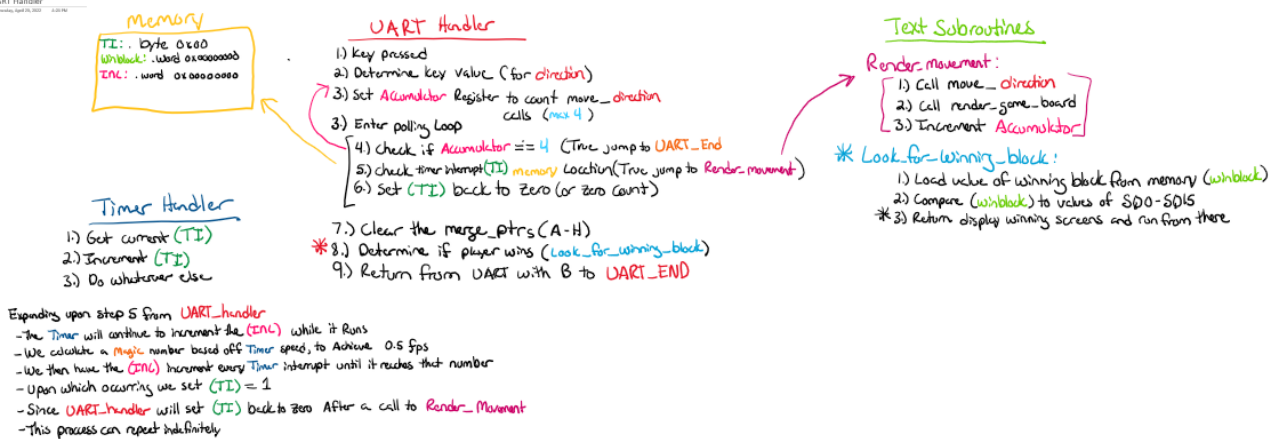 UART Handler
Tuesday, April 26, 2022
Memory
TI: . byte 0x00
Winblock: .word 0x00000000
INC: . word 0x00000000
UART Handler
1.) Key pressed
2.) Determine key value (for direction)
3.) Set Accumulator Register to count move_direction
calls (max 4)
3.) Enter polling Loop
4.) check if Accumulator == 4 (True jump to UART_End
5.) check timer interrupt (TI) memory Location (True jump to Render_movement)
6.) Set (TI) back to Zero (or Zero Count)
7.) Clear the merge_ptrs (A-H)
* 8.) Determine if player wins (Look_for_winning_block)
9.) Return from UART with B to UART_END
Text Subroutines
Render_movement:
1.) Call move_direction
2.) Call render_game_board
3.) Increment Accumulator
* Look_for_winning_block:
1.) Load value of winning block from memory (winblock)
2.) Compare (winblock) to values of SQ0-SQ15
* 3.) Return display winning screens and run from there
Timer Handler
1.) Get current (TI)
2.) Increment (TI)
3.) Do whatever else
Expanding upon step 5 from UART_handler
- The Timer will continue to increment the (INC) while it Runs
- We calculate a Magic number based off Timer speed, to Achieve 0.5 fps
- We then have the (INC) increment every Timer interrupt until it reaches that number
- Upon which occurring we set (TI) = 1
- Since UART_handler will set (TI) back to zero After a call to Render_Movement
- This process can repeat indefinitely